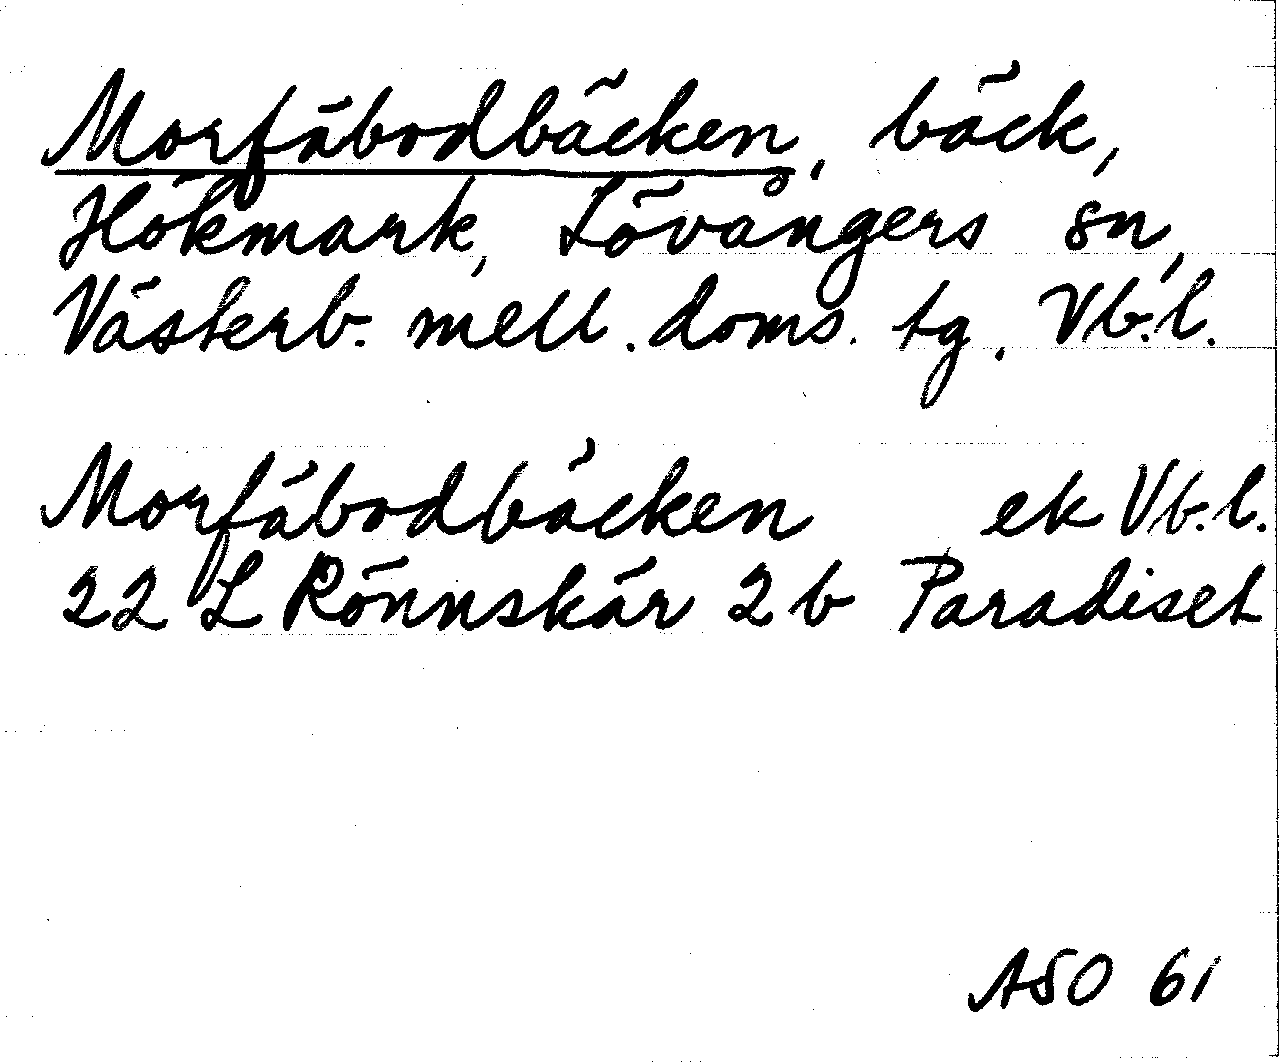 Morfäbodbäcken, bäck,
Hökmark, Lövångers sn,
Västerb. mell. doms. tg. Vb.l.
Morfäbodbäcken ek Vb.l.
22 L Rönnskär 2 b Paradiset
ASO 61